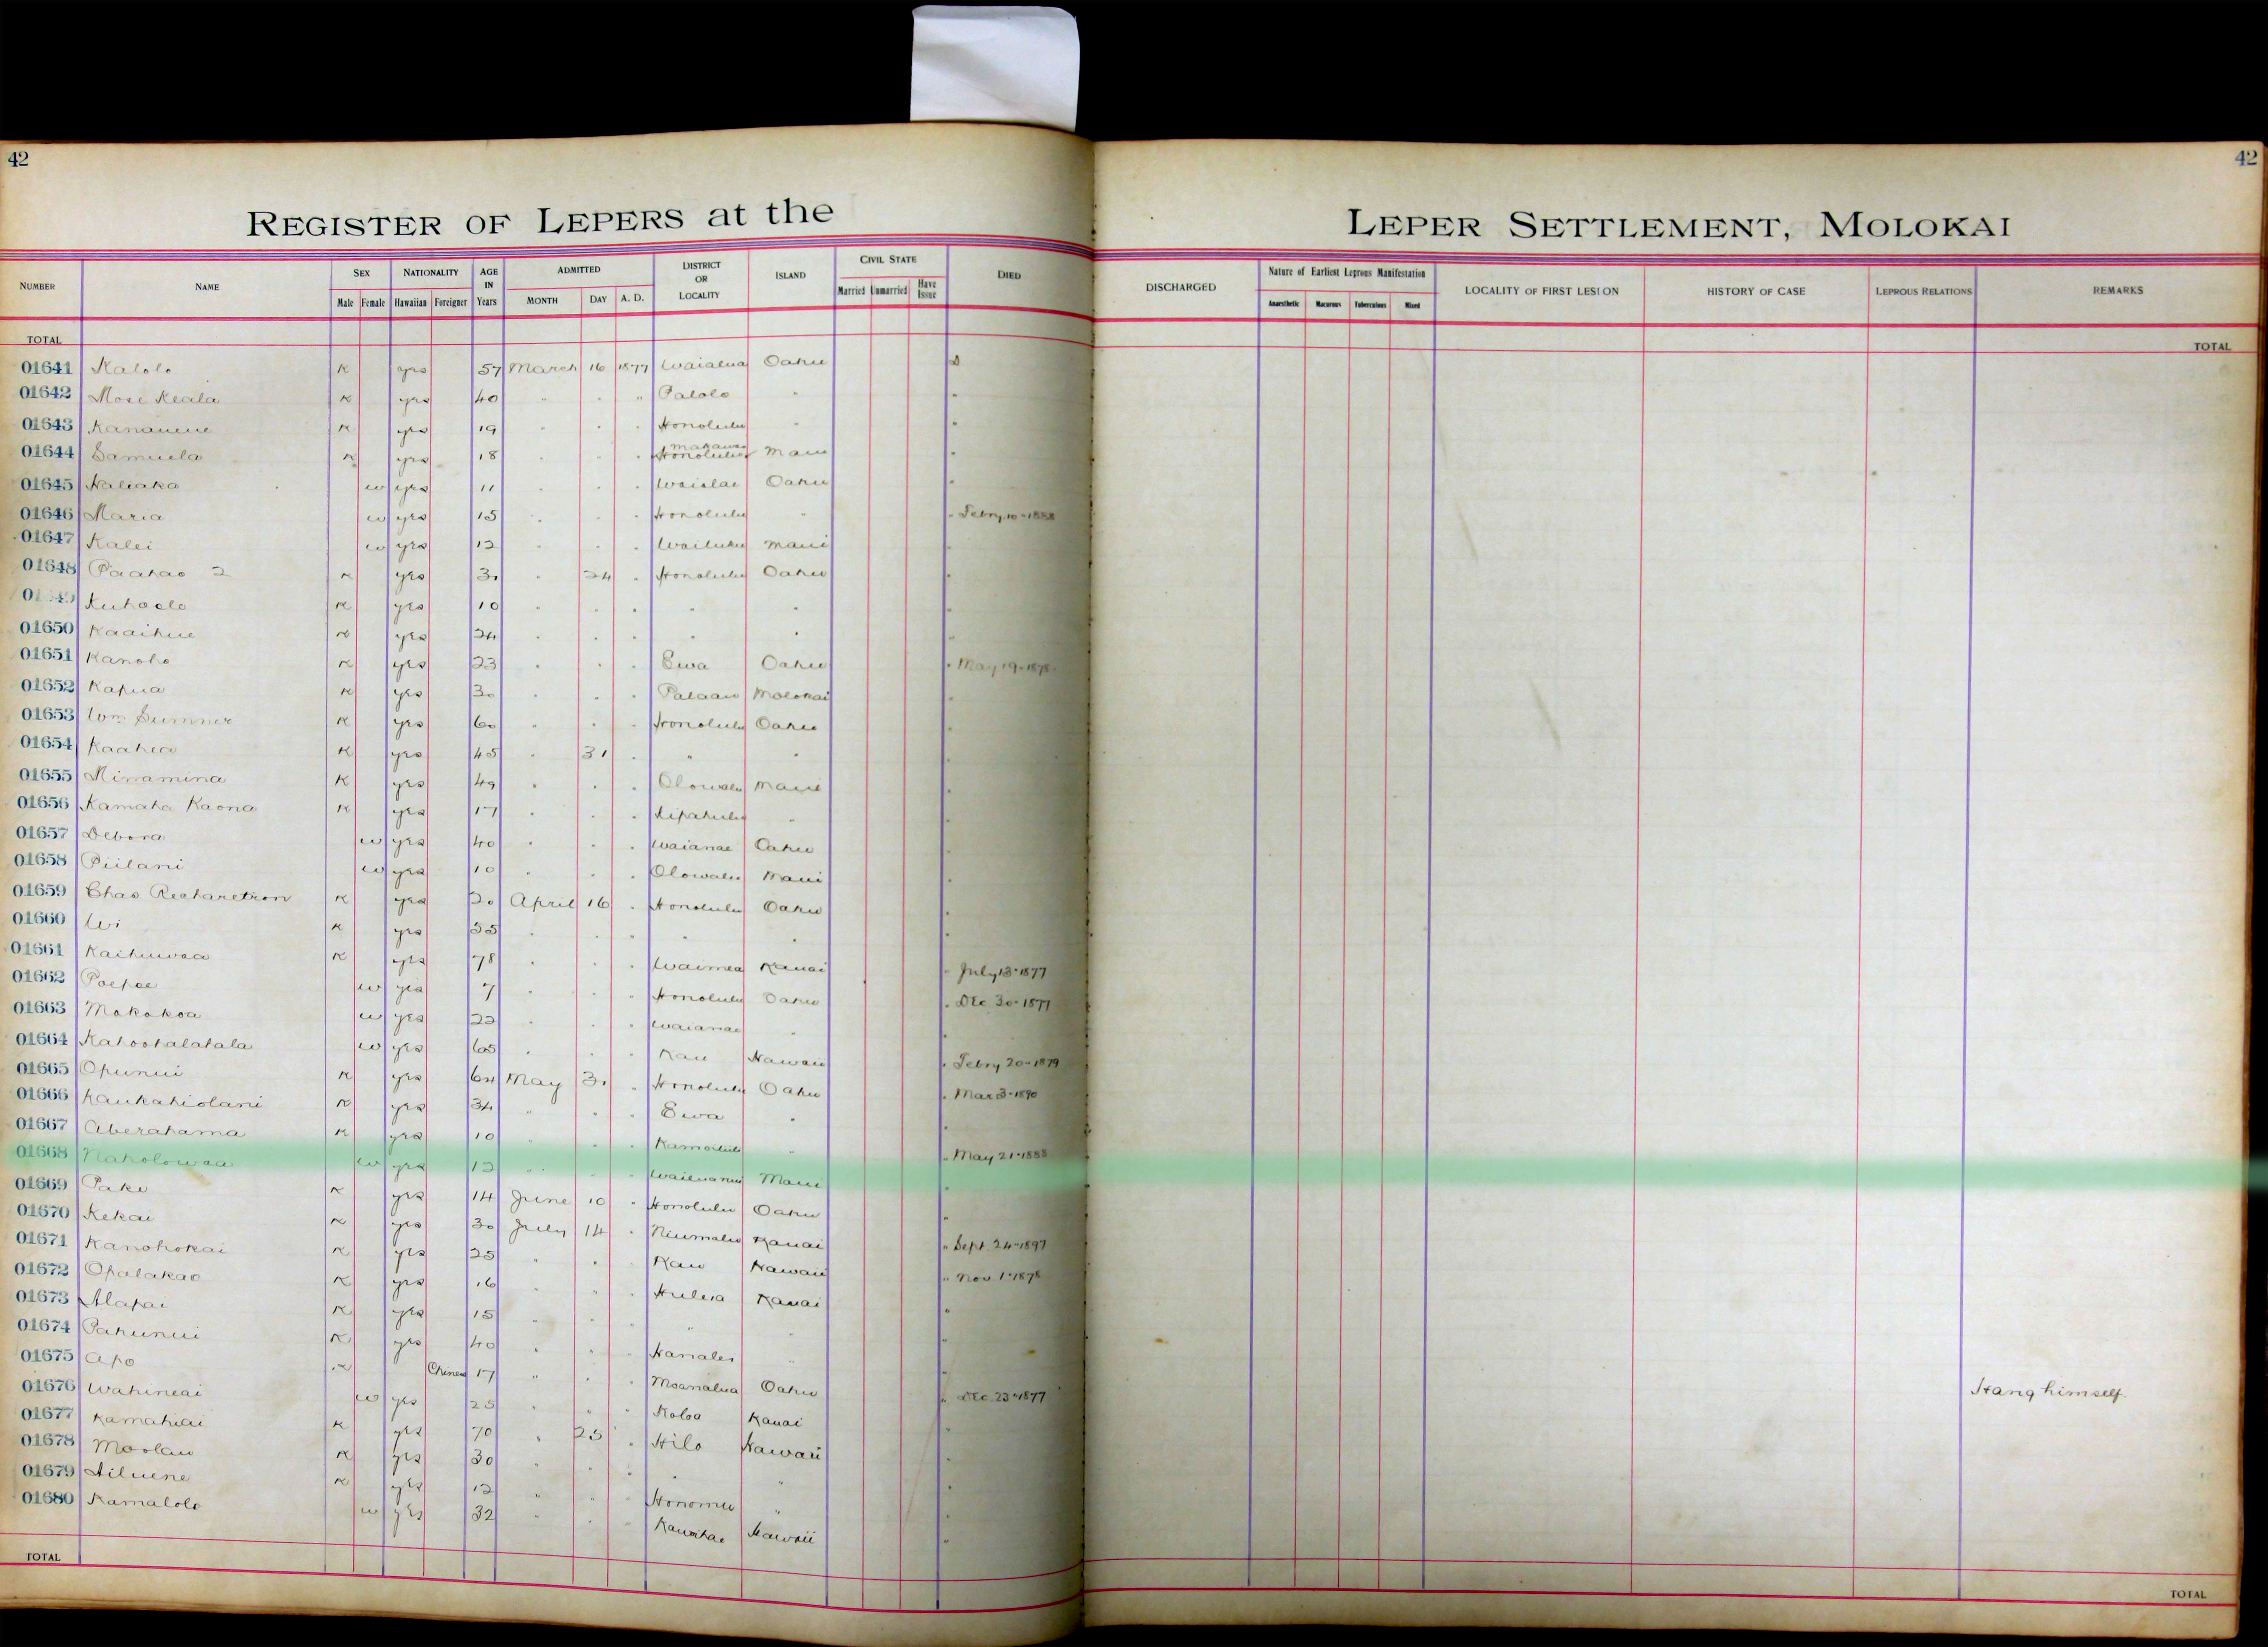 42 42
REGISTER OF LEPERS at the LEPER SETTLEMENT, MOLOKAI
NUMBER NAME SEX NATIONALITY AGE IN Years ADMITTED DISTRICT OR LOCALITY ISLAND CIVIL STATE DIED DISCHARGED Nature of Earliest Leprous Manifestation LOCALITY OF FIRST LESION HISTORY OF CASE LEPROUS RELATIONS REMARKS
Male Female Hawaiian Foreigner MONTH DAY A. D. Married Unmarried Have Issue Anaesthetic Macurous Tuberculous Mixed
TOTAL TOTAL
01641 Kalolo K yes 57 March 16 1877 Waialua Oahu D
01642 Mose Keala K yes 40 " " " Palolo " "
01643 Kananene K yes 19 " " " Honolulu " "
01644 Samuela K yes 18 " " " Makawao Honolulu Maui "
01645 Naliaka w yes 11 " " " Waialae Oahu "
01646 Maria w yes 15 " " " Honolulu " " Febry 10-1888
01647 Kalei w yes 12 " " " Wailuku Maui "
01648 Paahao 2 K yes 30 " 24 " Honolulu Oahu "
Kuhaelo K yes 10 " " " " " "
01650 Kaaihue K yes 24 " " " " " "
01651 Kanoho K yes 23 " " " Ewa Oahu " May 19-1878
01652 Kapua K yes 30 " " " Palaau Molokai "
01653 Wm Sumner K yes 60 " " " Honolulu Oahu "
01654 Kaahea K yes 45 " 31 " " " "
01655 Minamina K yes 49 " " " Olowalu Maui "
01656 Kamaha Kaona K yes 17 " " " Kipahulu " "
01657 Debora w yes 40 " " " Waianae Oahu "
01658 Piilani w yes 10 " " " Olowalu Maui "
01659 Chas Richardson K yes 20 April 16 " Honolulu Oahu "
01660 Wi K yes 55 " " " " " "
01661 Kaihuwaa K yes 78 " " " Waimea Kauai " July 13-1877
01662 Poepoe w yes 7 " " " Honolulu Oahu " Dec 30-1877
01663 Makakoa w yes 22 " " " Waianae " "
01664 Kahoohalahala w yes 65 " " " Kau Hawaii " Febry 20-1879
01665 Opunui K yes 64 May 31 " Honolulu Oahu " Mar 3-1890
01666 Kaukahiolani K yes 34 " " " Ewa " "
01667 Aberahama K yes 10 " " " Kamoiliili " " May 21-1888
01668 Naholowaa w yes 12 " " " Wailuanui Maui "
01669 Pake K yes 14 June 10 " Honolulu Oahu "
01670 Kekai K yes 30 July 14 " Niumalu Kauai " Sept 24-1897
01671 Kanohokai K yes 25 " " " Kau Hawaii " Nov 1-1878
01672 Opalakao K yes 16 " " " Huleia Kauai "
01673 Alapai K yes 15 " " " " " "
01674 Pahunui K yes 40 " " " Hanalei " "
01675 Apo K Chinese 17 " " " Moanalua Oahu " Dec 23-1877 Hang himself.
01676 Wahineai w yes 25 " " " Koloa Kauai "
01677 Kamahiai K yes 70 " 25 " Hilo Hawaii "
01678 Moolau K yes 30 " " " " " "
01679 Hiluene K yes 12 " " " Honomu " "
01680 Kamalolo w yes 32 " " " Kawaihae Hawaii "
TOTAL TOTAL